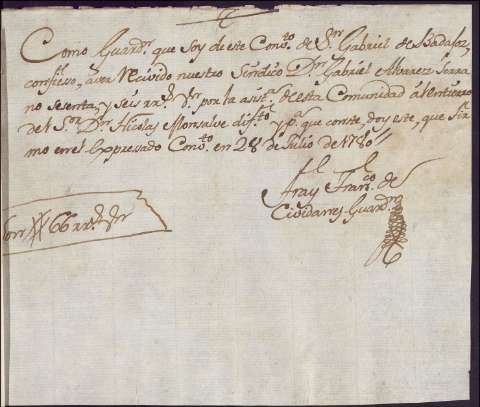 Como Guard.n que soy de este Conv.to de S.n Gabriel de Badajoz,
confieso, aver Recivido nuestro Sindico D.n Gabriel Alvarez Serra
no sesenta, y seis rr.s v.n por la asist.a de esta Comunidad â el entierro
del S.or D.n Nicolas Monsalve dif.to y p.a que conste, doy este, que fir
mo en el Expresado Conv.to en 28 de Julio de 1780
Fray Fran.co de
Guard.n
66 rr.s v.n